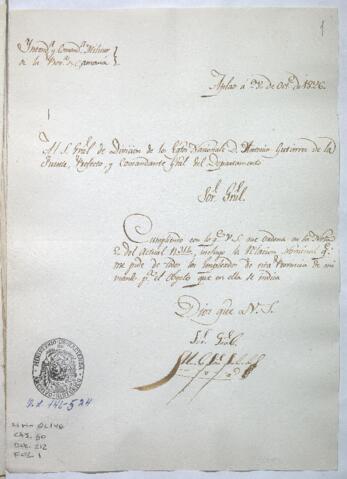 Intend.ª y Comand.ª Militar
de la Prov.ª de Camaná
Aplao á 2 de Oct.e de 1826.
Al S. Gral de Division de los Extos Nacionales D. Antonio Gutierrez de la
Fuente, Prefecto, y Comandante Gral del Departamento
Sor. Gral.
Cumpliendo con lo q.e V.S. me ordena en la Nota
del Actual incluyo la Razon Nominal q.e
me pide de todos los empleados de esta Provincia de mi
mando p.ª el objeto que en ella se indica
Dios gue A V.S.
Sor. Gral.
MINISTERIO DE HACIENDA
O.L. 146-524
CAJ. 60
DOC. 212
FOL. 1